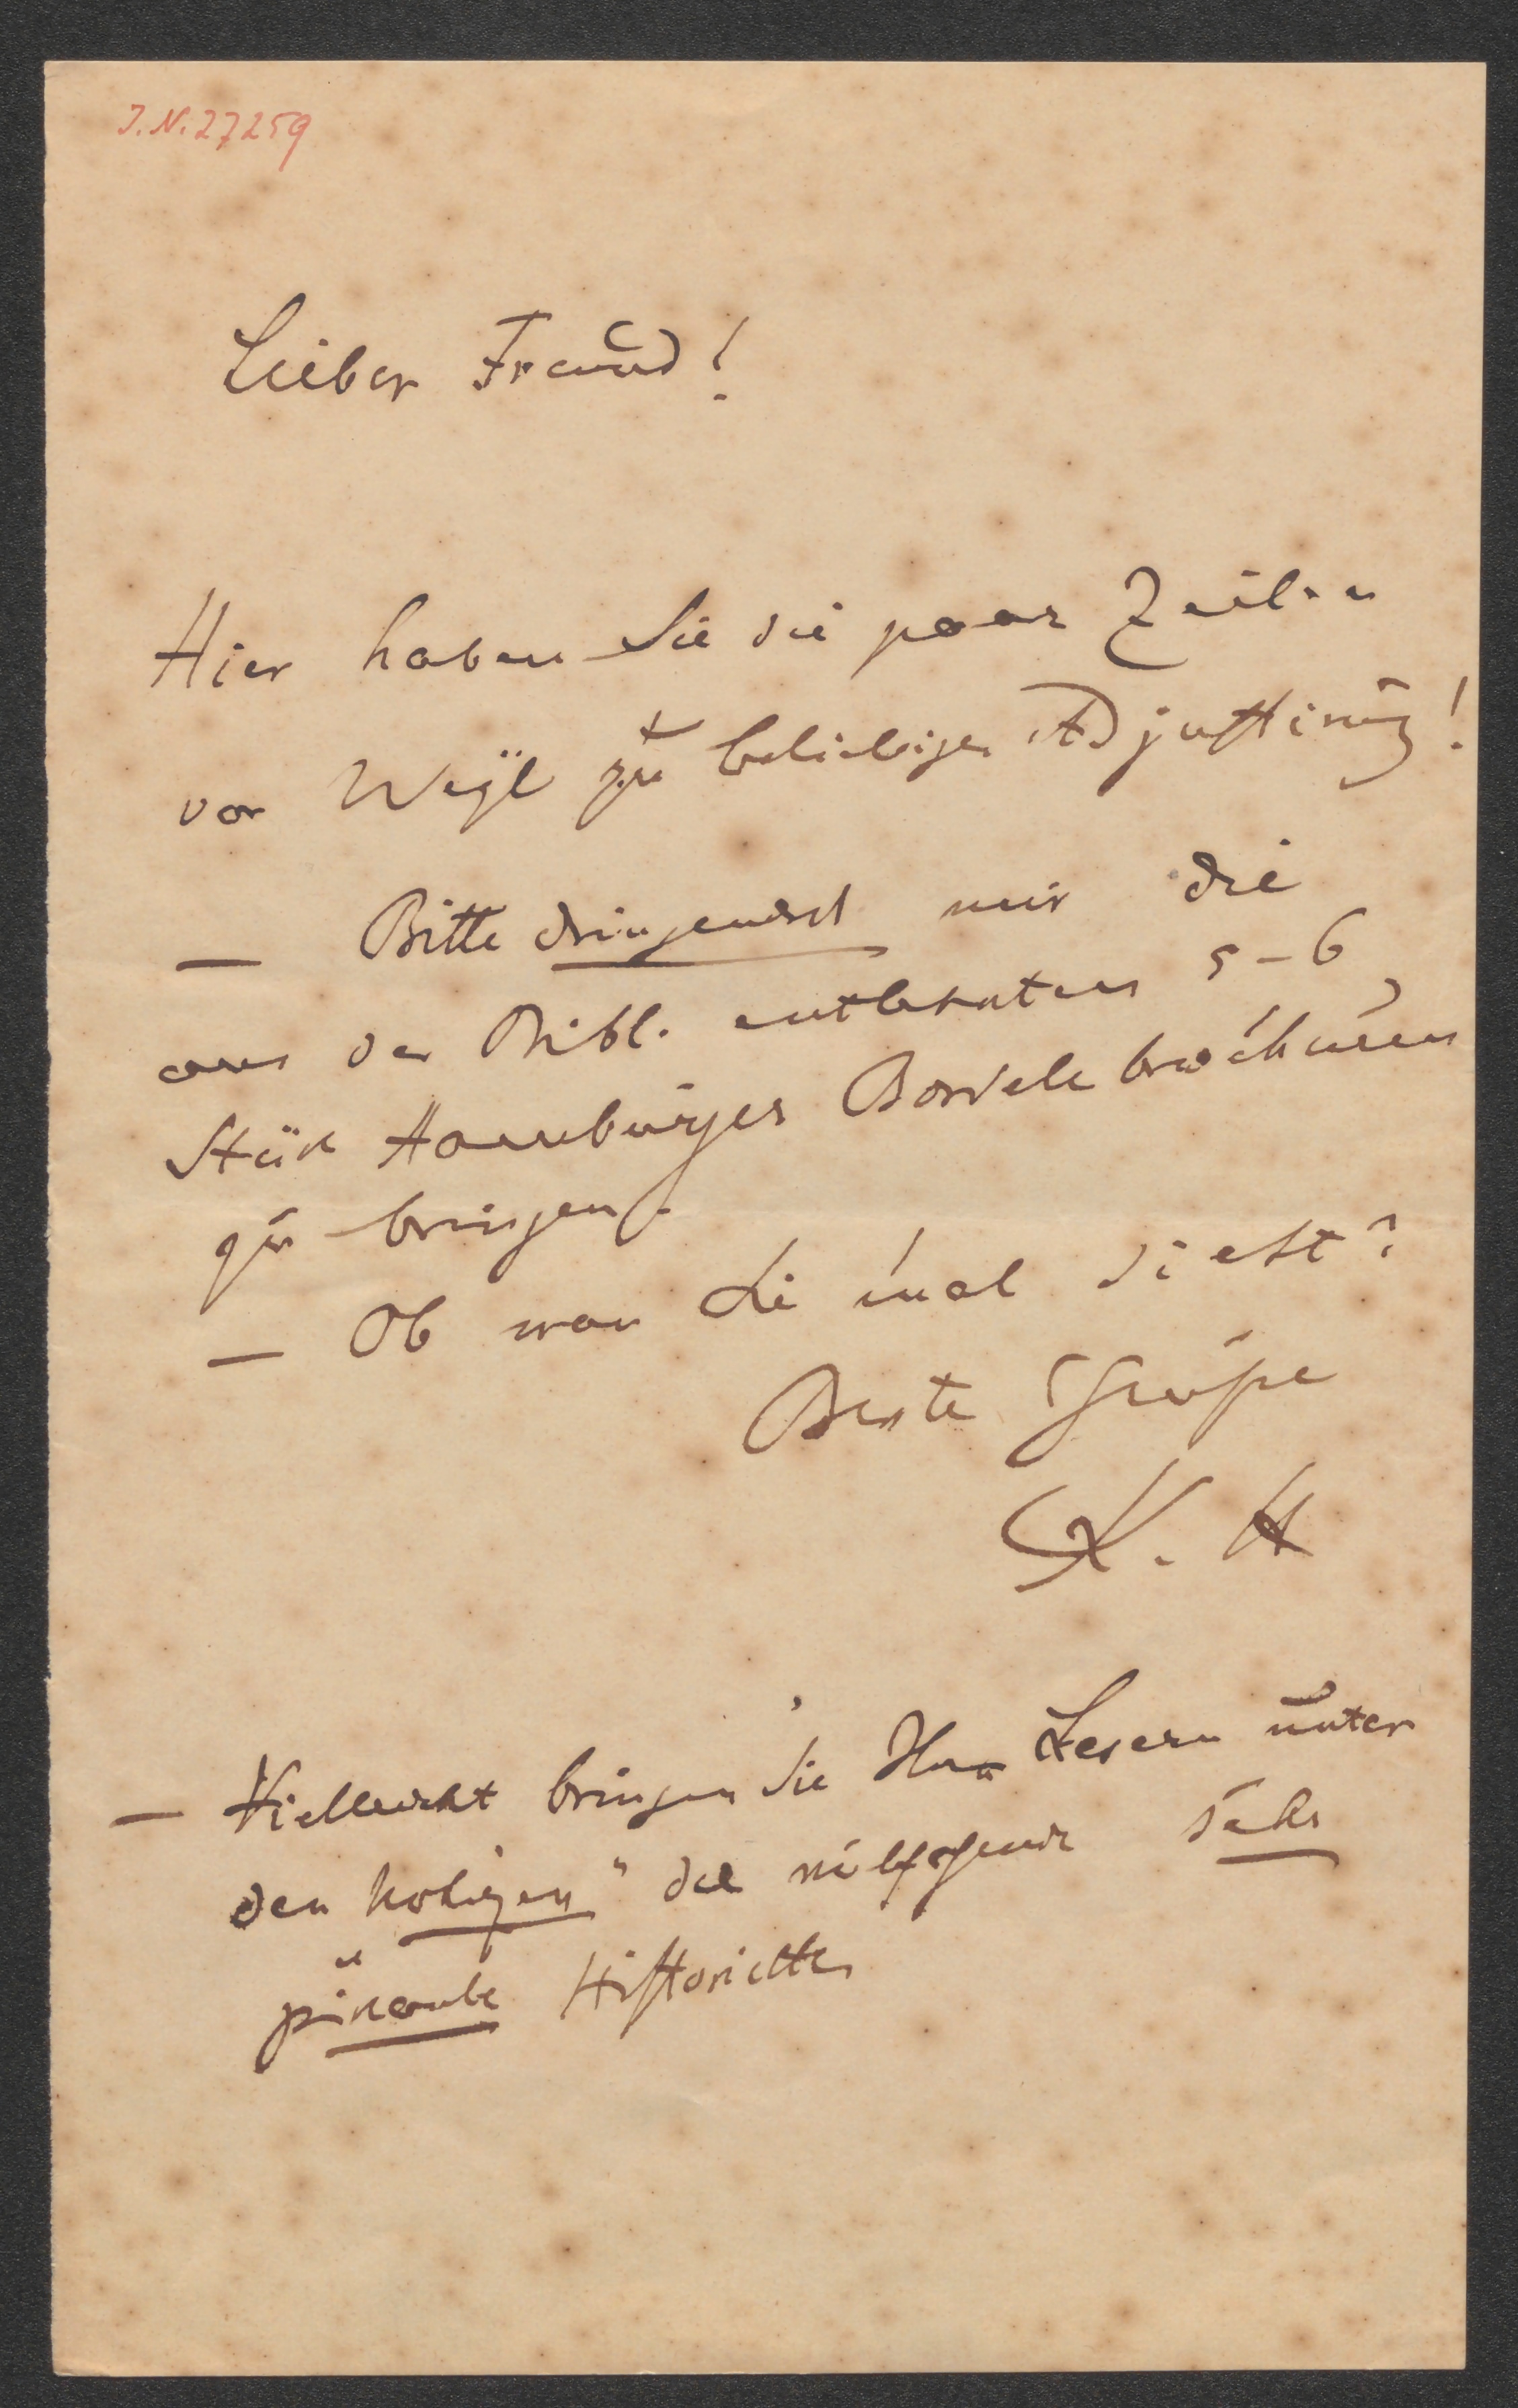 J.N. 27259
Lieber Freund!
Hier haben Sie die paar Zeilen
von Weyl zu beliebiger Adjustirung!
— Bitte dringendst mir die
aus der Bibl. entlehnten 5–6
Stück Hamburger Bordellbrochuren
zu bringen.
— Ob man Sie 'mal sieht?
Beste Grüße
K. H
— Vielleicht bringen Sie Ihren Lesern unter
den Notizen die sehr
pikante Historiette